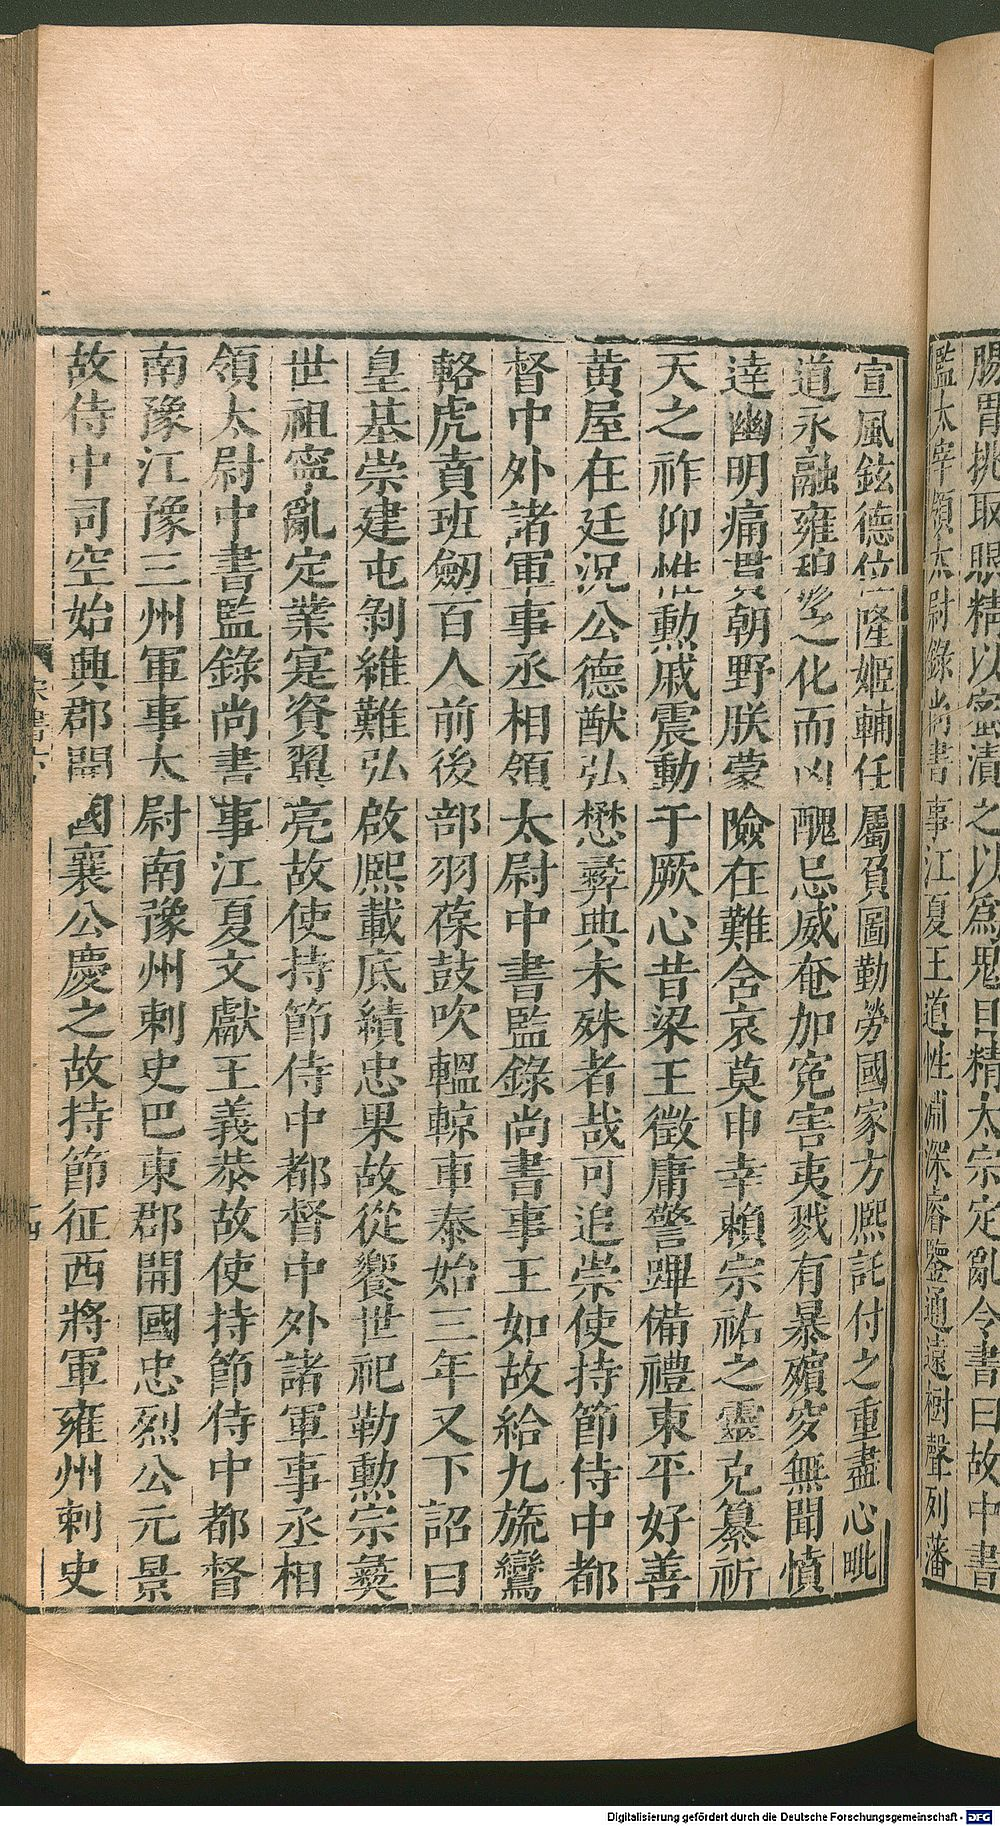 腸胃挑取眼精以蜜漬之以爲鬼目精太宗定亂令書曰故中書
監太宰領太尉錄尚書事江夏王道性淵深睿鑒通遠樹聲列藩
宣風鉉德位隆姬輔任屬負圖勤勞國家方熙託付之重盡心毗
道永融雍穆之化而凶醜忌威奄加冤害夷戮有暴殯穸無聞憤
達幽明痛貫朝野朕蒙險在難含哀莫申幸賴宗祐之靈克纂祈
天之祚仰惟勳戚震動于厥心昔梁王徵庸警蹕備禮東平好善
黃屋在廷況公德猷弘懋彝典未殊者哉可追崇使持節侍中都
督中外諸軍事丞相領太尉中書監錄尚書事王如故給九旒鸞
輅虎賁班劒百人前後部羽葆鼓吹轀輬車泰始三年又下詔曰
皇基崇建屯剝維難弘啟熙載底績忠果故從饗世祀勒勳宗彝
世祖寧亂定業寔資翼亮故使持節侍中都督中外諸軍事丞相
領太尉中書監錄尚書事江夏文獻王義恭故使持節侍中都督
南豫江豫三州軍事太尉南豫州刺史巴東郡開國忠烈公元景
故侍中司空始興郡開國襄公慶之故持節征西將軍雍州刺史
Digitalisierung gefördert durch die Deutsche Forschungsgemeinschaft - DFG